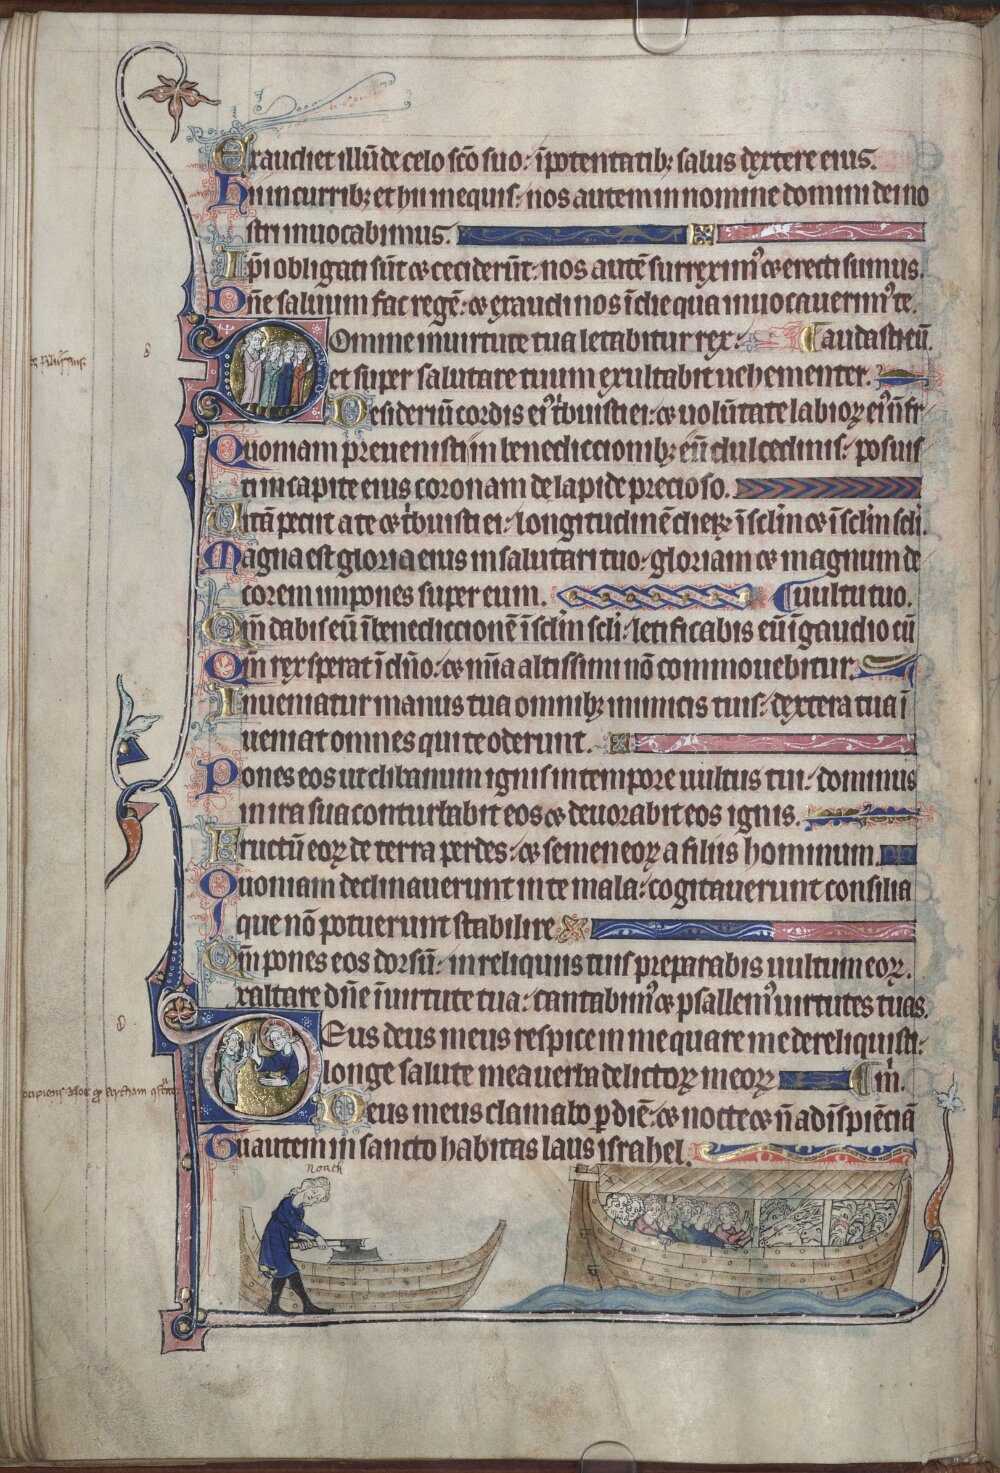 Exaudiet illū de celo sc̄o suo: ī potentatibꝫ salus dextere eius.
Hii in curribꝫ et hii in equis: nos autem in nomine domini dei no
stri inuocabimus.
Ip̄i obligati sūt ⁊ ceciderūt: nos autē surreximꝰ ⁊ erecti sumus.
Dn̄e saluum fac regē: ⁊ exaudi nos ī die qua inuocauerimꝰ te.
Domine in uirtute tua letabitur rex: laudastieū.
et super salutare tuum exultabit uehementer.
Desideriū cordis eiꝰ tͥbuisti ei: ⁊ uolūtate labioꝝ eiꝰ n̄ fr
Quoniam preuenisti in benediccionibꝫ eū dulcedinis: posuis
ti in capite eius coronam de lapide precioso.
Uitā peciit a te ⁊ tͥbuisti ei: longitudinē dieꝝ ī sc̄lm ⁊ ī sc̄lm sc̄li.
Magna est gloria eius in salutari tuo: gloriam ⁊ magnum de
corem impones super eum. uultu tuo.
Qm̄ dabis eū ī benediccionē ī sc̄lm sc̄li: letificabis eū ī gaudio cū
Qm̄ rex sperat ī dn̄o: ⁊ mīa altissimi nō commouebitur.
Inueniatur manus tua omnibꝫ inimicis tuis: dextera tua ī
ueniat omnes qui te oderunt.
Pones eos ut clibanum ignis in tempore uultus tui: dominus
in ira sua conturbabit eos ⁊ deuorabit eos ignis.
Fructū eoꝝ de terra perdes: ⁊ semen eoꝝ a filiis hominum.
Quoniam declinauerunt in te mala: cogitauerunt consilia
que nō potuerunt stabilire
Qm̄ pones eos dorsū: in reliquiis tuis preparabis uultum eoꝝ.
xaltare dn̄e ī uirtute tua: cantabimꝰ ⁊ psallemꝰ uirtutes tuas.
Deus deus meus respice in me quare me dereliquisti:
longe salute mea uerba delictoꝝ meoꝝ m̄.
Deus meus clamabo p̱ diē: ⁊ nocte ⁊ n̄ ad īsipiēciā
Tu autem in sancto habitas laus israhel.
noath